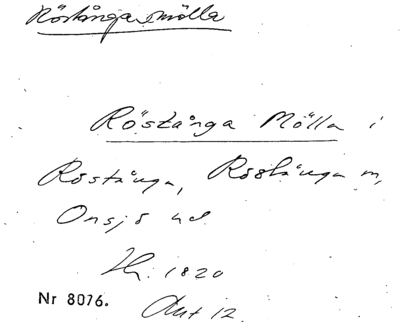 Röstångamölla
Röstånga Mölla i
Röstånga, Röstånga m,
Onsjö hd
Th. 1820
Nr 8076. Ant 12.